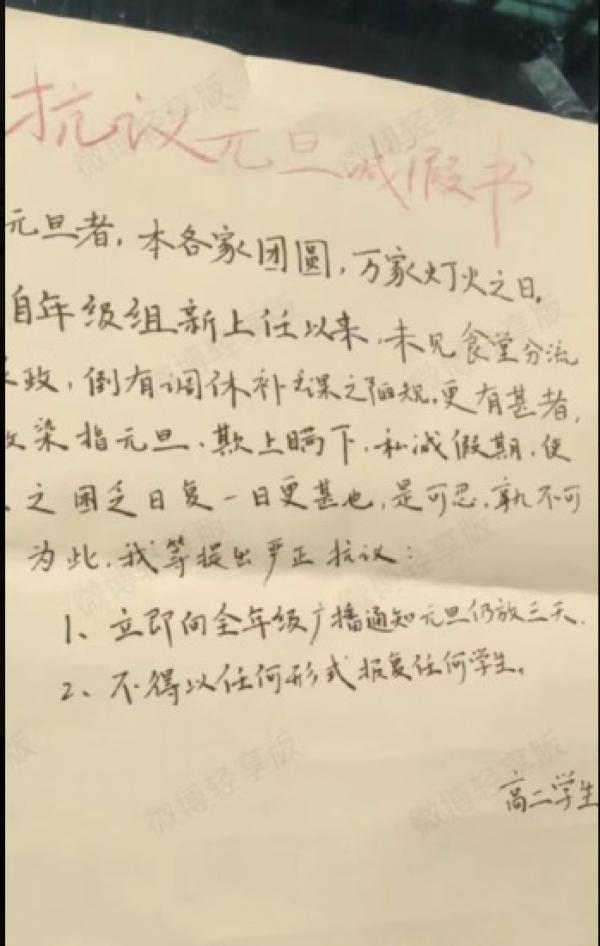 抗议元旦减假书
元旦者，本各家团圆，万家灯火之日。
自年级组新上任以来，未见食堂分流
政，倒有调休补课之陋规。更有甚者，
染指元旦，欺上瞒下，私减假期，使
之困乏日复一日更甚也，是可忍，孰不可
为此，我等提出严正抗议：
1、立即向全年级广播通知元旦仍放三天.
2、不得以任何形式报复任何学生。
高二学生
微博轻享版